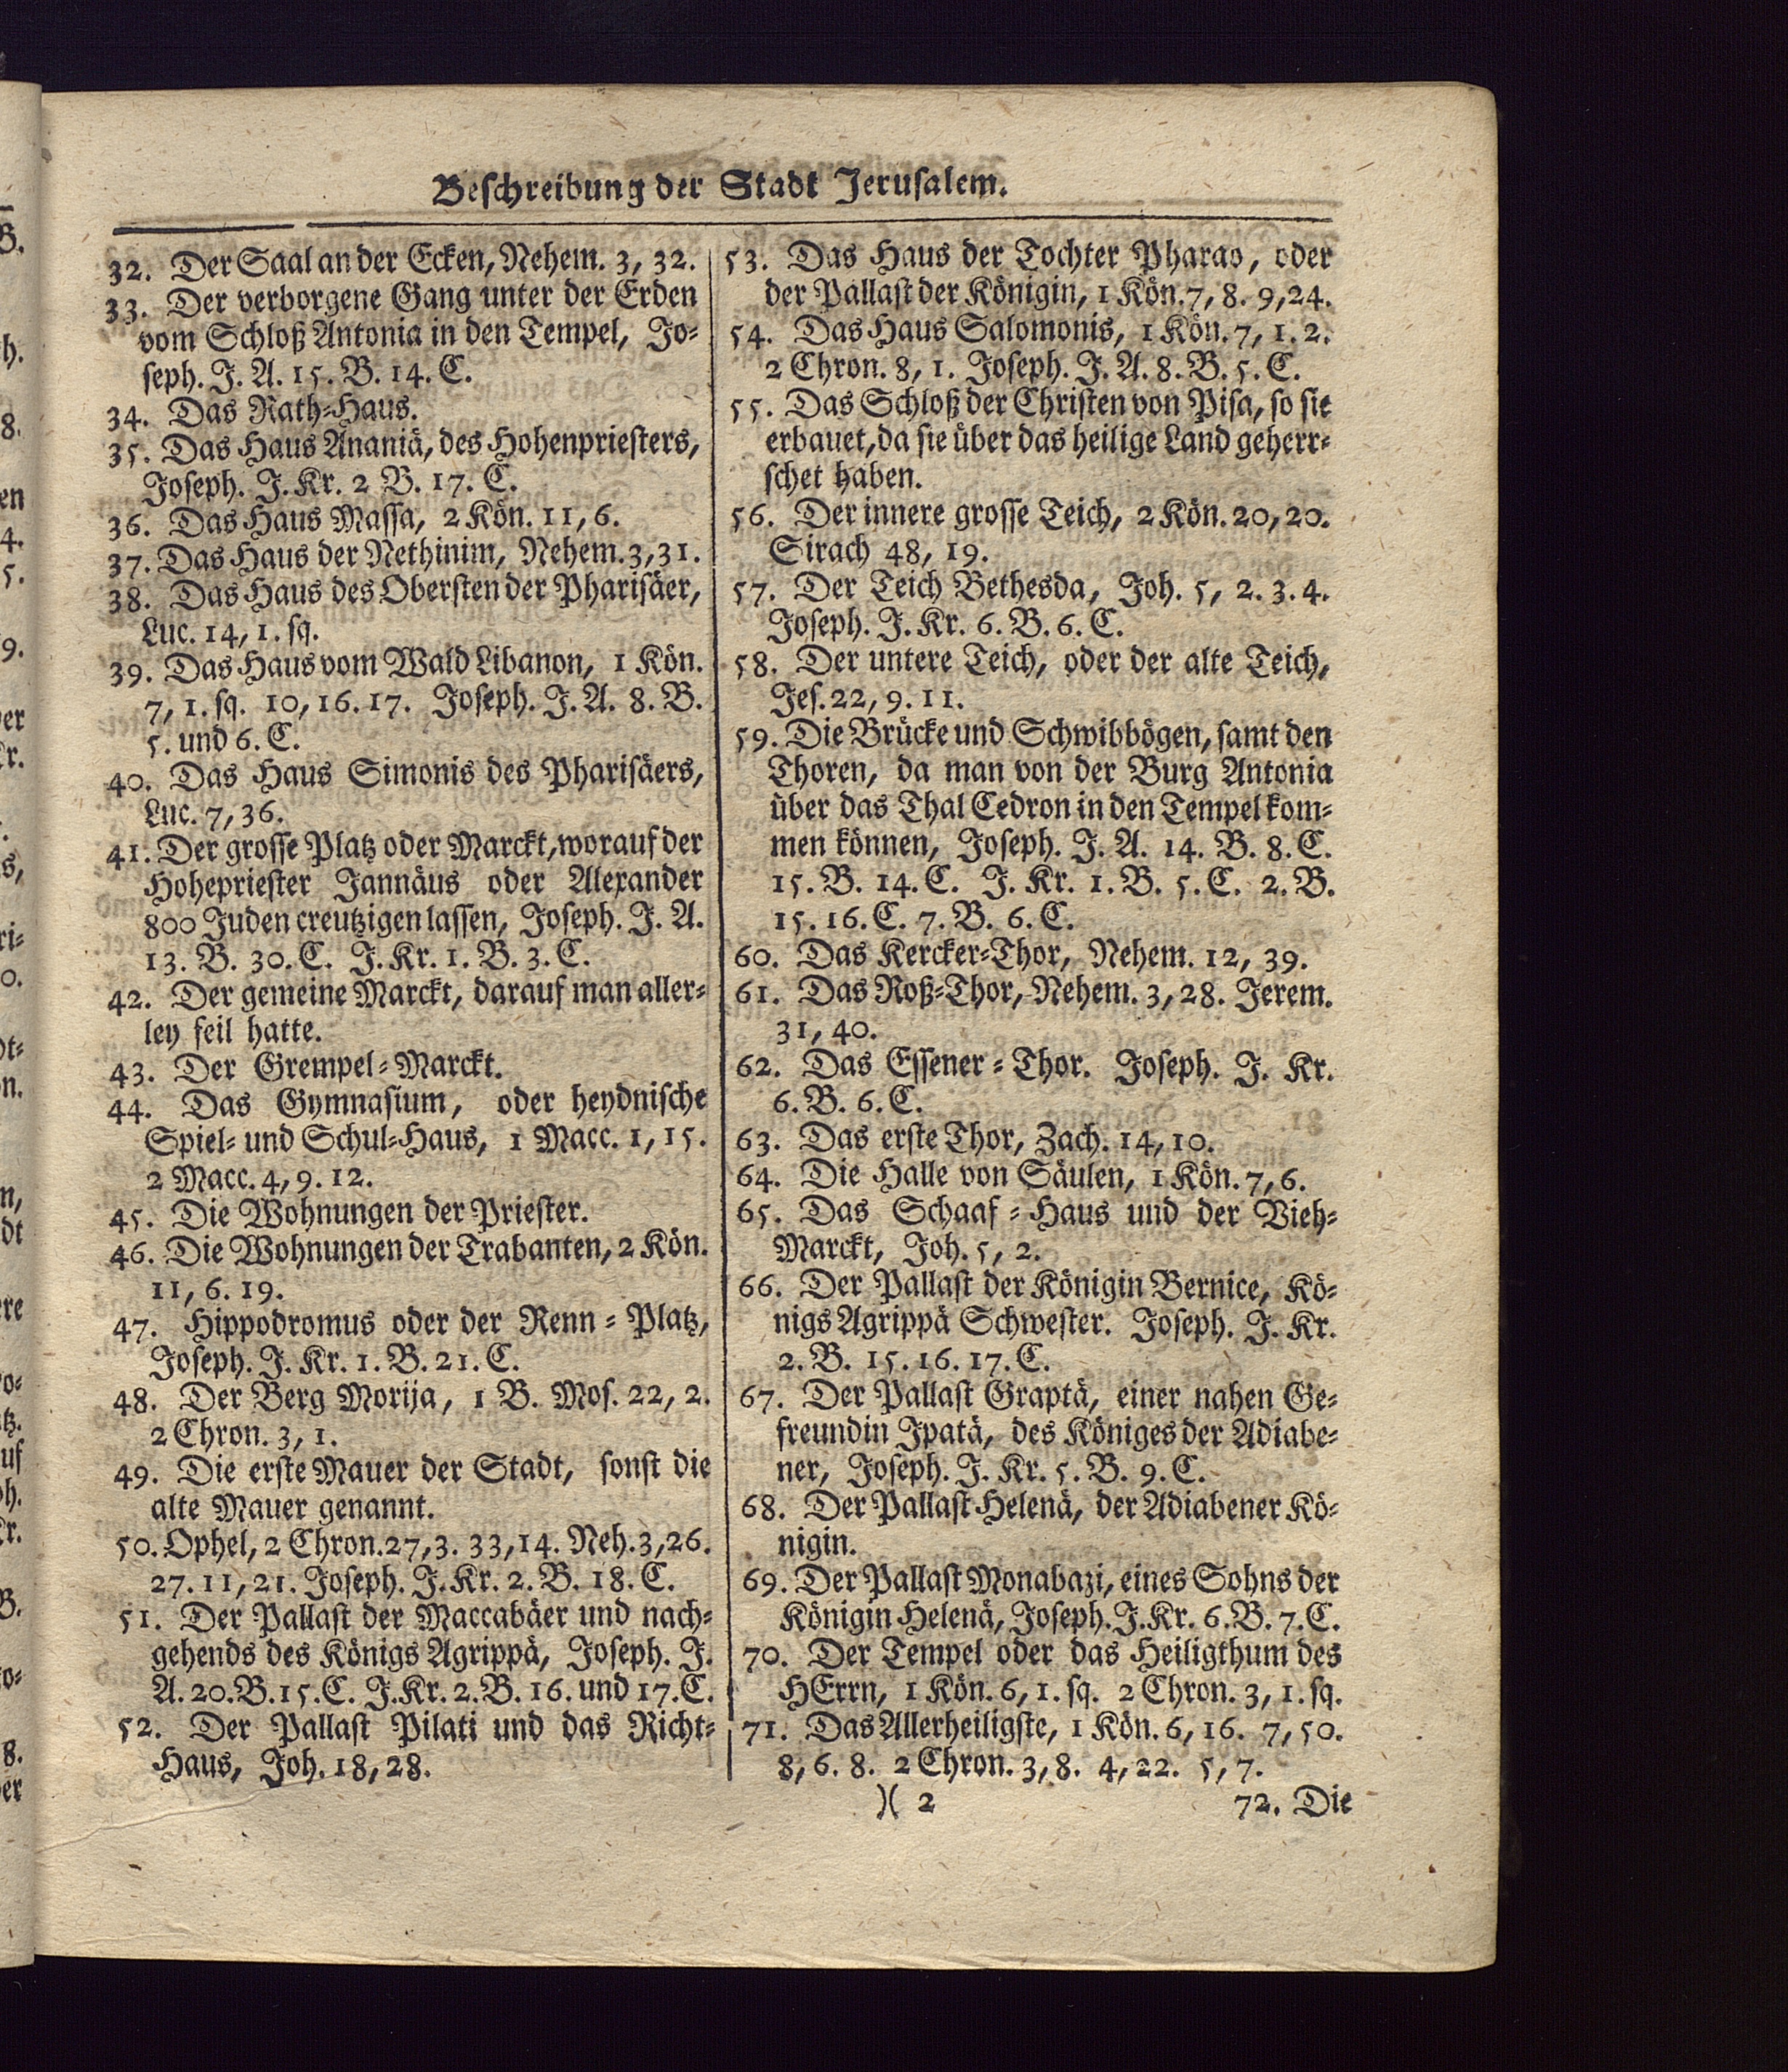 Beschreibung der Stadt Jerusalem.
32. Der Saal an der Ecken, Nehem. 3, 32.
33. Der verborgene Gang unter der Erden
vom Schloß Antonia in den Tempel, Jo-
seph. J. A. 15. B. 14. C.
34. Das Rath-Haus.
35. Das Haus Ananiä, des Hohenpriesters,
Joseph. J. Kr. 2 B. 17. C.
36. Das Haus Massa, 2 Kön. 11, 6.
37. Das Haus der Nethinim, Nehem. 3, 31.
38. Das Haus des Obersten der Pharisäer,
Luc. 14, 1. sq.
39. Das Haus vom Wald Libanon, 1 Kön.
7, 1. sq. 10, 16. 17. Joseph. J. A. 8. B.
5. und 6. C.
40. Das Haus Simonis des Pharisäers,
Luc. 7, 36.
41. Der grosse Platz oder Marckt, worauf der
Hohepriester Jannäus oder Alexander
800 Juden creutzigen lassen, Joseph. J. A.
13. B. 30. C. J. Kr. 1. B. 3. C.
42. Der gemeine Marckt, darauf man aller-
ley feil hatte.
43. Der Grempel-Marckt.
44. Das Gymnasium, oder heydnische
Spiel- und Schul-Haus, 1 Macc. 1, 15.
2 Macc. 4, 9. 12.
45. Die Wohnungen der Priester.
46. Die Wohnungen der Trabanten, 2 Kön.
11, 6. 19.
47. Hippodromus oder der Renn-Platz,
Joseph. J. Kr. 1. B. 21. C.
48. Der Berg Morija, 1 B. Mos. 22, 2.
2 Chron. 3, 1.
49. Die erste Mauer der Stadt, sonst die
alte Mauer genannt.
50. Ophel, 2 Chron. 27, 3. 33, 14. Neh. 3, 26.
27. 11, 21. Joseph. J. Kr. 2. B. 18. C.
51. Der Pallast der Maccabäer und nach-
gehends des Königs Agrippä, Joseph. J.
A. 20. B. 15. C. J. Kr. 2. B. 16. und 17. C.
52. Der Pallast Pilati und das Richt-
Haus, Joh. 18, 28.
53. Das Haus der Tochter Pharao, oder
der Pallast der Königin, 1 Kön. 7, 8. 9, 24.
54. Das Haus Salomonis, 1 Kön. 7, 1. 2.
2 Chron. 8, 1. Joseph. J. A. 8. B. 5. C.
55. Das Schloß der Christen von Pisa, so sie
erbauet, da sie über das heilige Land geherr-
schet haben.
56. Der innere grosse Teich, 2 Kön. 20, 20.
Sirach 48, 19.
57. Der Teich Bethesda, Joh. 5, 2. 3. 4.
Joseph. J. Kr. 6. B. 6. C.
58. Der untere Teich, oder der alte Teich,
Jes. 22, 9. 11.
59. Die Brücke und Schwibbögen, samt den
Thoren, da man von der Burg Antonia
über das Thal Cedron in den Tempel kom-
men können, Joseph. J. A. 14. B. 8. C.
15. B. 14. C. J. Kr. 1. B. 5. C. 2. B.
15. 16. C. 7. B. 6. C.
60. Das Kercker-Thor, Nehem. 12, 39.
61. Das Roß-Thor, Nehem. 3, 28. Jerem.
31, 40.
62. Das Essener-Thor. Joseph. J. Kr.
6. B. 6. C.
63. Das erste Thor, Zach. 14, 10.
64. Die Halle von Säulen, 1 Kön. 7, 6.
65. Das Schaaf-Haus und der Vieh-
Marckt, Joh. 5, 2.
66. Der Pallast der Königin Bernice, Kö-
nigs Agrippä Schwester. Joseph. J. Kr.
2. B. 15. 16. 17. C.
67. Der Pallast Graptä, einer nahen Ge-
freundin Ipatä, des Königes der Adiabe-
ner, Joseph. J. Kr. 5. B. 9. C.
68. Der Pallast Helenä, der Adiabener Kö-
nigin.
69. Der Pallast Monabazi, eines Sohns der
Königin Helenä, Joseph. J. Kr. 6. B. 7. C.
70. Der Tempel oder das Heiligthum des
HErrn, 1 Kön. 6, 1. sq. 2 Chron. 3, 1. sq.
71. Das Allerheiligste, 1 Kön. 6, 16. 7, 50.
8, 6. 8. 2 Chron. 3, 8. 4, 22. 5, 7.
)( 2 72. Die